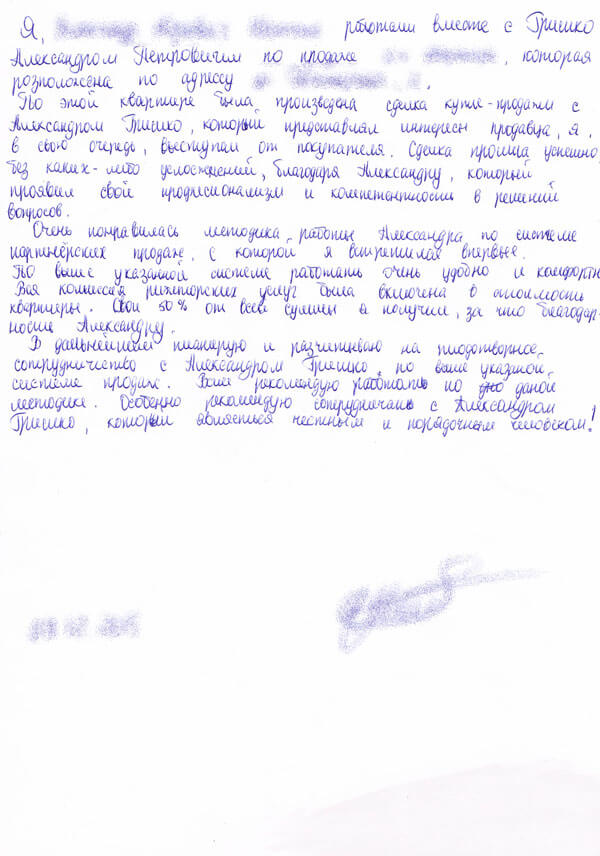 Я, работали вместе с Гришко
Александром Петровичем по продаже , которая
розположена по адрессу .
По этой квартире была произведена сделка купли-продажи с
Александром Гришко, который представлял интересы продавца, я,
в свою очередь, выступал от покупателя. Сделка прошла успешно,
без каких-либо усложнений, благодаря Александру, который
проявил свой професионализм и компетентность в решений
вопросов.
Очень понравилась методика работы Александра по системе
партнёрских продаж, с которой я встретился впервые.
По выше указаной системе работать очень удобно и комфортно.
Вся комиссия риэлторских услуг была включена в стоимость
квартиры. Свои 50% от всей суммы я получил, за что благодар-
ность Александру.
В дальнейшем планирую и разчитываю на плодотворное
сотрудничество с Александром Гришко, по выше указаной
системе продаж. Всем рекомендую работать по даной
методике. Особенно рекомендую сотрудничать с Александром
Гришко, который является честным и порядочным человеком!